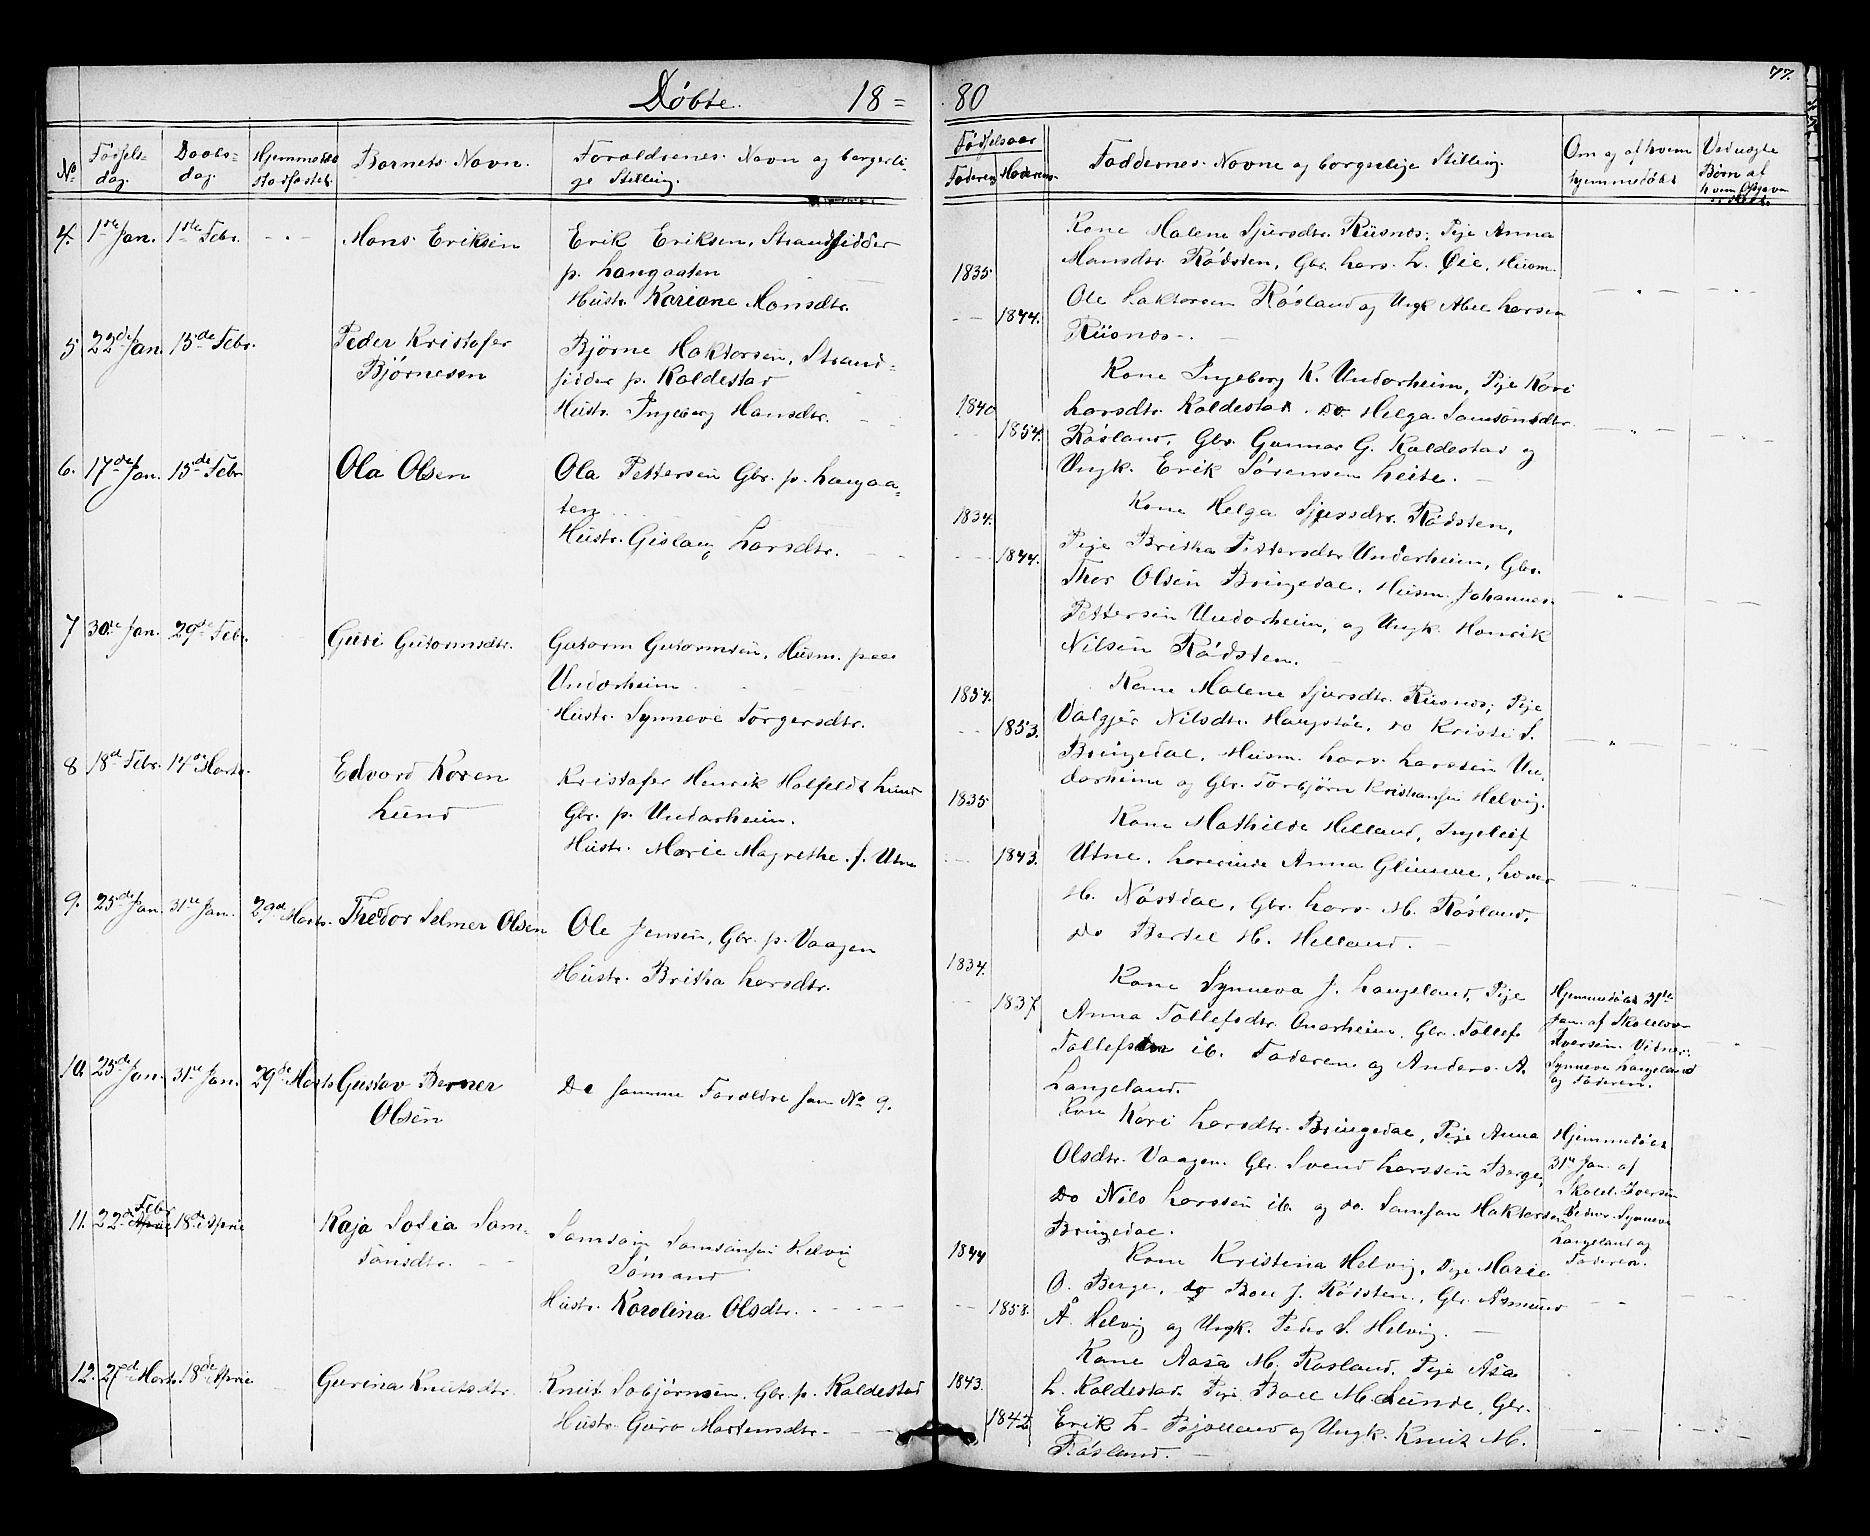 77.
Døbte. 18=80
No
Fødsels-
dag.
Daabs-
dag.
Hjemmedøbt
stadfæstet.
Barnets Navn.
Forældrenes Navn og borgerli-
ge Stilling.
Fødselsaar
Faderens
Moderens
Faddernes Navne og borgerlige Stilling.
Om og af hvem
hjemmedøbt
Uægte
Børn af
4. 1ste Jan. 1ste Febr. Mons Eriksen
Erik Eriksen, Strandsidder
p. Langaaten
Hustr. Kariane Monsdtr.
1835
1844.
Kone Malene Sjursdtr. Riisnæs; Pige Anna
Monsdtr. Rødsten, Gbr. Lars L. Øie, Husm.
Ole Haktorsen Røsland og Ungk. Abel Larsen
Riisnæs.
5 22de Jan. 15de Febr. Peder Kristofer
Bjørnesen
Bjørne Haktorsen, Strand=
sidder p. Kaldestad
Hustr. Ingeborg Hansdtr.
1840
1854.
Kone Ingeborg K. Undarheim, Pige Kari
Larsdtr. Kaldestad. do Helga Samsonsdtr.
Røsland, Gbr. Gunnar G. Kaldestad og
Ungk. Erik Sørensen Leite.
6. 17de Jan. 15de Febr Ola Olsen
Ola Pettersen Gbr. p. Langaa=
ten
Hustr. Gislaug Larsdtr.
1834.
1844.
Kone Helga Sjursdtr. Rødsten,
Pige Britha Pettersdtr. Undarheim, Gbr.
Thor Olsen Bringedal, Husm. Johannes
Pettersen Undarheim, og Ungk. Henrik
Nilsen Rødsten.
7 30te Jan. 29de Febr. Guri Gutormsdtr.
Gutorm Gutormsen, Husm. paa
Undarheim
Hustr. Synneve Torgersdtr.
1854.
1853.
Kone Malene Sjursdtr. Riisnæs; Pige
Valgjer Nilsdtr. Haugstøe, do Kristi S.
Bringedal, Husm. Lars Larssen Un-
darheim og Gbr. Torbjørn Kristiansen Helvig.
8 18de Febr. 14de Marts. Edvard Koren
Lund
Kristofer Henrik Holfeldt Lund
Gbr. p. Undarheim.
Hustr. Marie Magrethe f. Utne
1835
1843.
Kone Mathilde Helland, Ingeleif
Utne, Lærerinde Anna Glimme, Lærer
H. Nøstdal, Gbr. Lars M. Røsland,
do Bertel H. Helland.
9. 25de Jan. 31te Jan. 29de Marts. Theodor Selmer Olsen
Ole Jensen, Gbr. p. Vaagen
Hustr. Britha Larsdtr.
1834.
1837
Kone Synneva J. Langeland, Pige
Anna Tollefsdtr. Onarheim, Gbr. Tollef
Tollefsen ib. Faderen og Anders A.
Langeland.
Hjemmedøbt 31te
Jan. af Skolelærer
Iversen. Vidner:
Synneva Langeland
og Faderen.
10. 25de Jan. 31te Jan. 29de Marts Gustav Berner
Olsen
De samme Forældre som No 9.
Kone Kari Larsdtr. Bringedal, Pige Anna
Olsdtr. Vaagen. Gbr. Svend Larssen Berge,
Do Nils Larssen ib. og do. Samson Haktorsen
Bringedal.
Hjemmedøbt
31te Jan. af
Skolel. Iversen
Vidner. Synneva
Langeland og
Faderen.
11. 22de Febr April 18de April Kaja Sofia Sam-
sonsdtr.
Samson Samsonsen Helvig
Sømand
Hustr. Karolina Olsdtr.
1844
1858.
Kone Kristina Helvig, Pige Marie
O. Berge, do Boel J. Rødsten, Gbr. Asmund
Å. Helvig og Ungk. Peder S. Helvig.
12. 27de Marts. 18de April Gurina Knutsdtr.
Knut Torbjørnsen. Gbr. p. Kaldestad
Hustr. Guro Mortensdtr.
1843.
1842
Kone Aasa M. Røsland, Pige Åsa
L. Kaldestad. Pige Boel M. Lunde, Gbr.
Erik L. Bjølland og Ungk. Knut M.
Røsland.